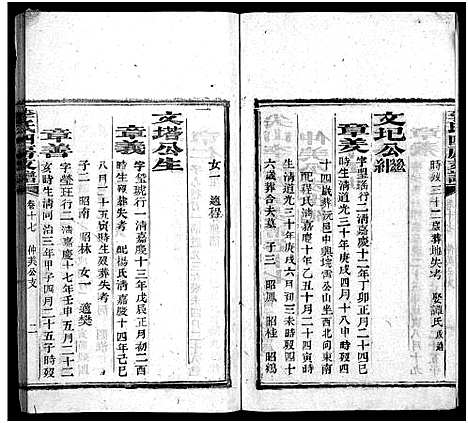 時歿三十二歲葬地失考 娶譚氏改適
文圯公繼
章美
字璺瑤行一清嘉慶十二年丁卯正月二十四巳
時生清道光三十年庚戌四月十八申時歿四
十四歲葬沅邑中興垸雷公山坐西北向東南
配程氏清嘉慶十年乙丑十月二十四寅時
生清道光三十年庚戌六月初三未時歿四十
六歲葬合夫墓 子三 昭鳳 昭桂 昭鶴
女一 適程
文塔公生
章義
字瑩琥行一清嘉慶十三年戊辰正月初二酉
時生歿葬失考 配楊氏清嘉慶十四年己巳
八月二十五寅時生歿葬失考
子二 昭南 昭林 女一 適樊
章善
字瑩玨行二清嘉慶十七年壬申五月二十二
亥時生清同治三年甲子四月二十五子時歿
卷十七 仲夫公支 二